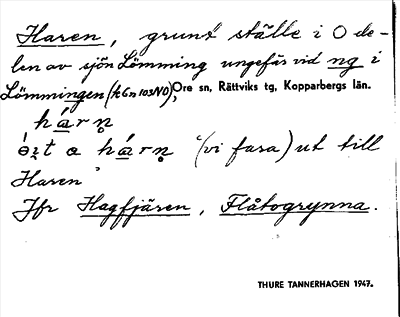 Haren, grunt ställe i O de-
len av sjön Lömming ungefär vid ng i
Lömmingen (kGn 103 NO), Ore sn, Rättviks tg, Kopparbergs län.
hárn̥
a hárn̥ “(vi fara) ut till
Haren”
Jfr Hagfjären, Flåtogrynna.
THURE TANNERHAGEN 1947.